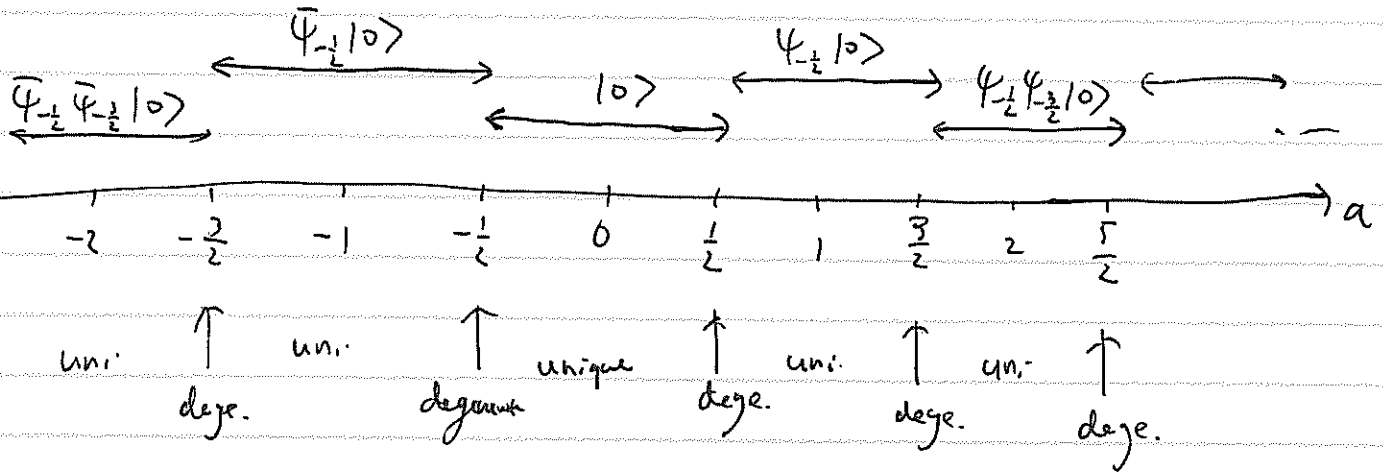 ψ̄_{-1/2}|0> ψ_{-1/2}|0>
ψ̄_{-1/2} ψ̄_{-3/2}|0> |0> ψ_{-1/2}ψ_{-3/2}|0> . . –
-2 -3/2 -1 -1/2 0 1/2 1 3/2 2 5/2 a
uni. uni. unique uni. uni.
dege. degenerate dege. dege. dege.